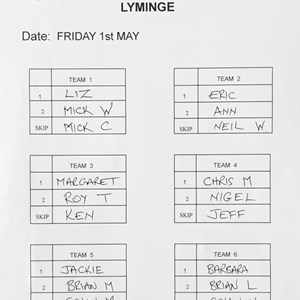 LYMINGE
Date: FRIDAY 1st MAY
TEAM 1
1 LIZ
2 MICK W
SKIP MICK C
TEAM 2
1 ERIC
2 ANN
SKIP NEIL W
TEAM 3
1 MARGARET
2 ROY T
SKIP KEN
TEAM 4
1 CHRIS M
2 NIGEL
SKIP JEFF
TEAM 5
1 JACKIE
2 BRIAN M
TEAM 6
1 BARBARA
2 BRIAN L